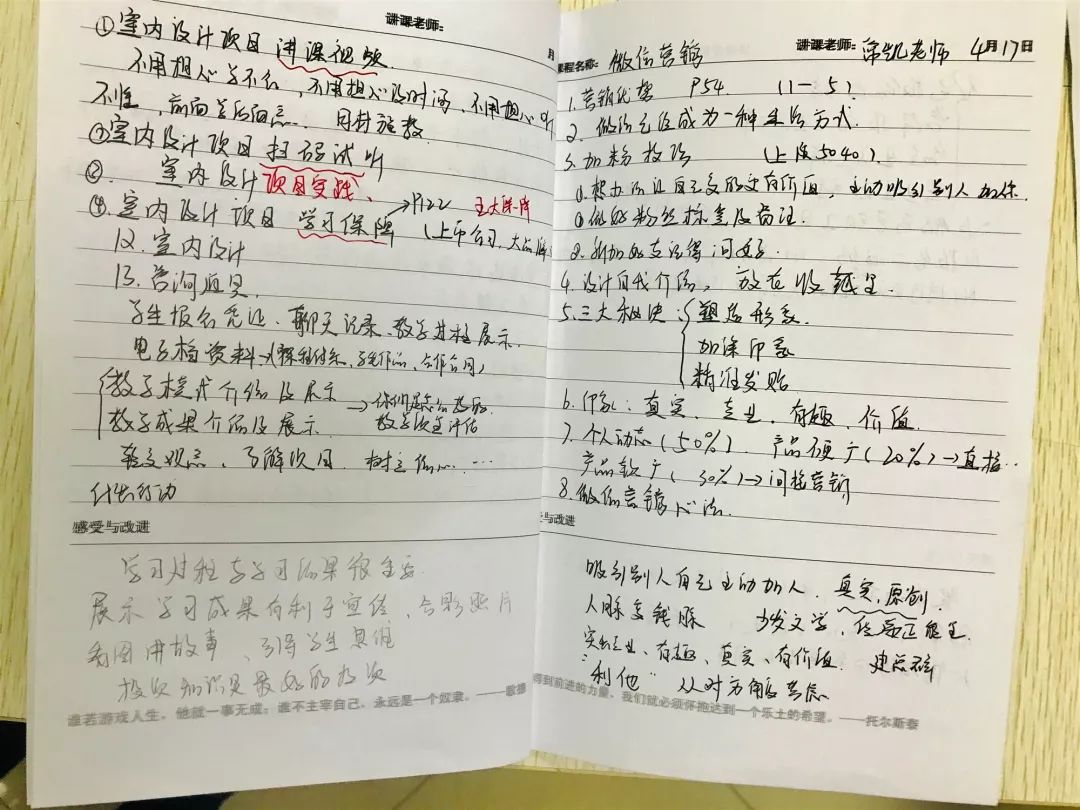 讲课老师：
月
①室内设计项目 讲课视频
不用担心学不会，不用担心没时间，不用担心听
不懂，前面学后面忘…
③室内设计项目 扫码试听
②. 室内设计 项目实战、
④. 室内设计项目 学习保障 → P122 五大保障
(上市公司、大品牌
12. 室内设计
13. 咨询
学生报名凭证、聊天记录、教学进程展示.
电子档资料→(课程体系、学生作品、合作合同)
教学模式介绍及展示
教学成果介绍及展示 教学效果评估
转变观点、了解项目、树立信心……
付出行动
感受与改进
学习过程与学习结果很重要
展示学习成果有利于宣传、合影照片
看图讲故事、引导学生思维
投资知识是最好的投资
谁若游戏人生，他就一事无成；谁不主宰自己，永远是一个奴隶。——歌德
讲课老师： 常凯老师 4月17日
课程名称： 微信营销
1. 营销优势 P54. (1-5)
2. 微信已经成为一种生活方式.
3. 加粉技巧 (上限5040).
①.想办法让自己变的更有价值，主动吸引别人加你.
②做好粉丝标签及备注.
③.新加好友记得问好.
4. 设计自我介绍， 放在收藏里.
5. 三大秘诀：
塑造形象.
加深印象
精准发贴
6. 印象：真实、专业、有趣、价值.
7. 个人动态(50%). 产品硬广(20%)→直接..
产品软广(30%)→间接营销
8. 微信营销心法.
与改进
吸引别人自己主动加人. 真实，原创.
人脉变钱脉 少发文学，传递正能量.
专业、有趣、真实、有价值.
“利他” 从对方角度考虑
得到前进的力量，我们就必须怀抱达到一个乐土的希望。——托尔斯泰